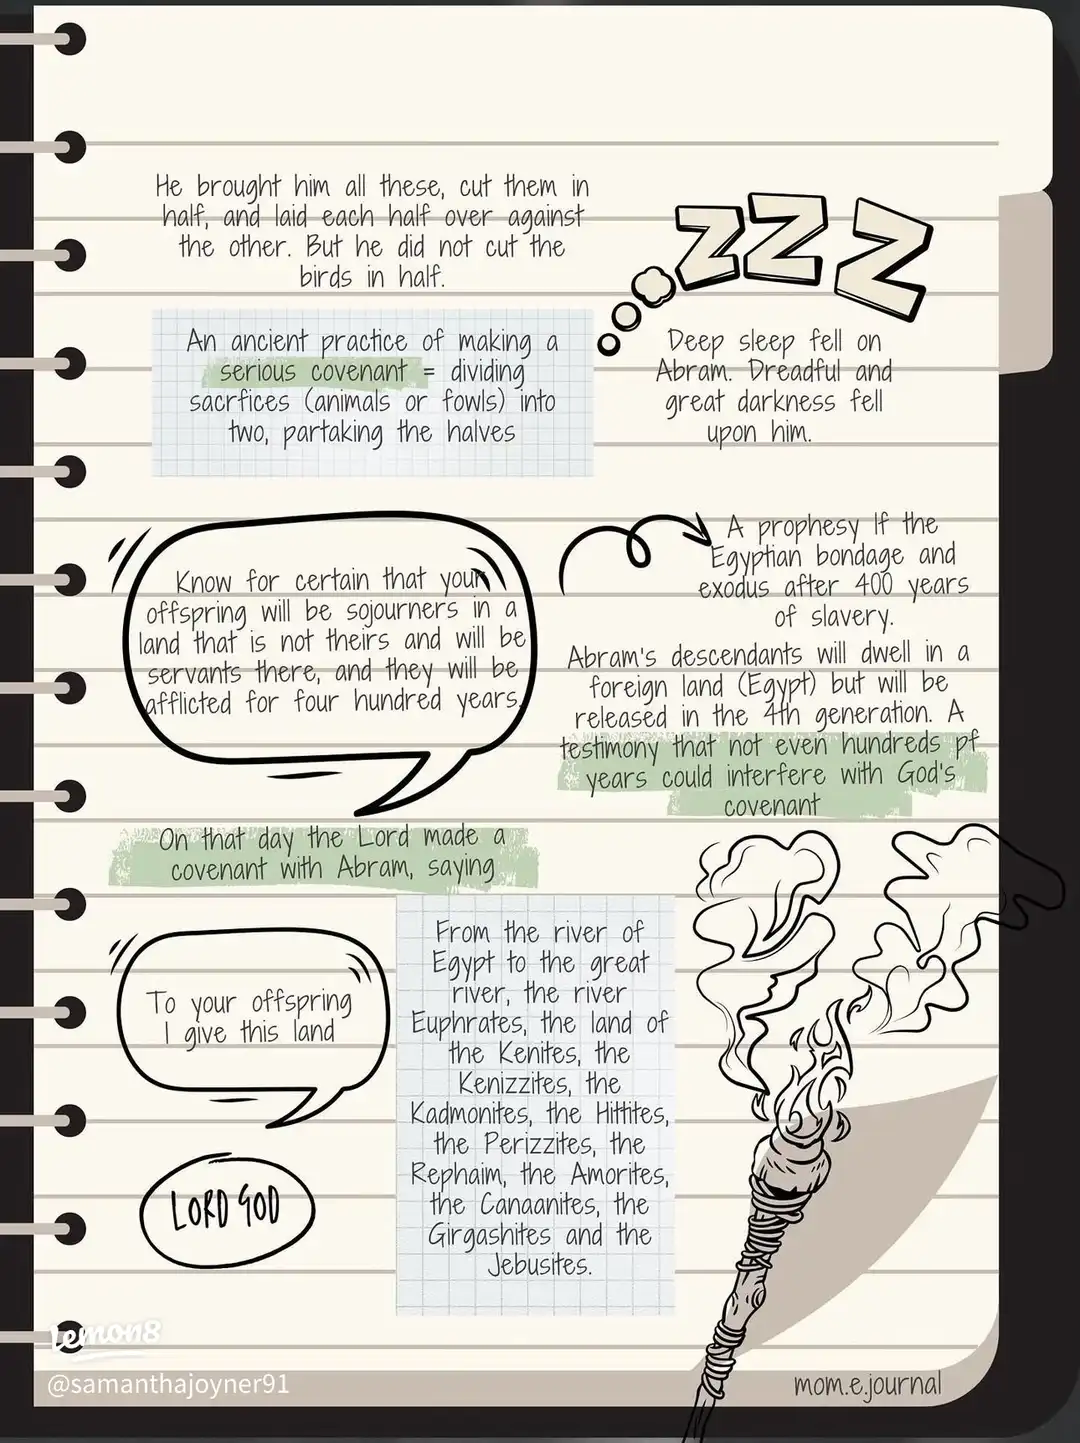 He brought him all these, cut them in
half, and laid each half over against
the other. But he did not cut the
birds in half.
ZZZ
An ancient practice of making a
serious covenant = dividing
sacrfices (animals or fowls) into
two, partaking the halves
Deep sleep fell on
Abram. Dreadful and
great darkness fell
upon him.
Know for certain that your
offspring will be sojourners in a
land that is not theirs and will be
servants there, and they will be
afflicted for four hundred years.
A prophesy If the
Egyptian bondage and
exodus after 400 years
of slavery.
Abram's descendants will dwell in a
foreign land (Egypt) but will be
released in the 4th generation. A
testimony that not even hundreds pf
years could interfere with God's
covenant
On that day the Lord made a
covenant with Abram, saying
To your offspring
I give this land
LORD GOD
From the river of
Egypt to the great
river, the river
Euphrates, the land of
the Kenites, the
Kenizzites, the
Kadmonites, the Hittites,
the Perizzites, the
Rephaim, the Amorites,
the Canaanites, the
Girgashites and the
Jebusites.
lemon8
@samanthajoyner91
mom.e.journal